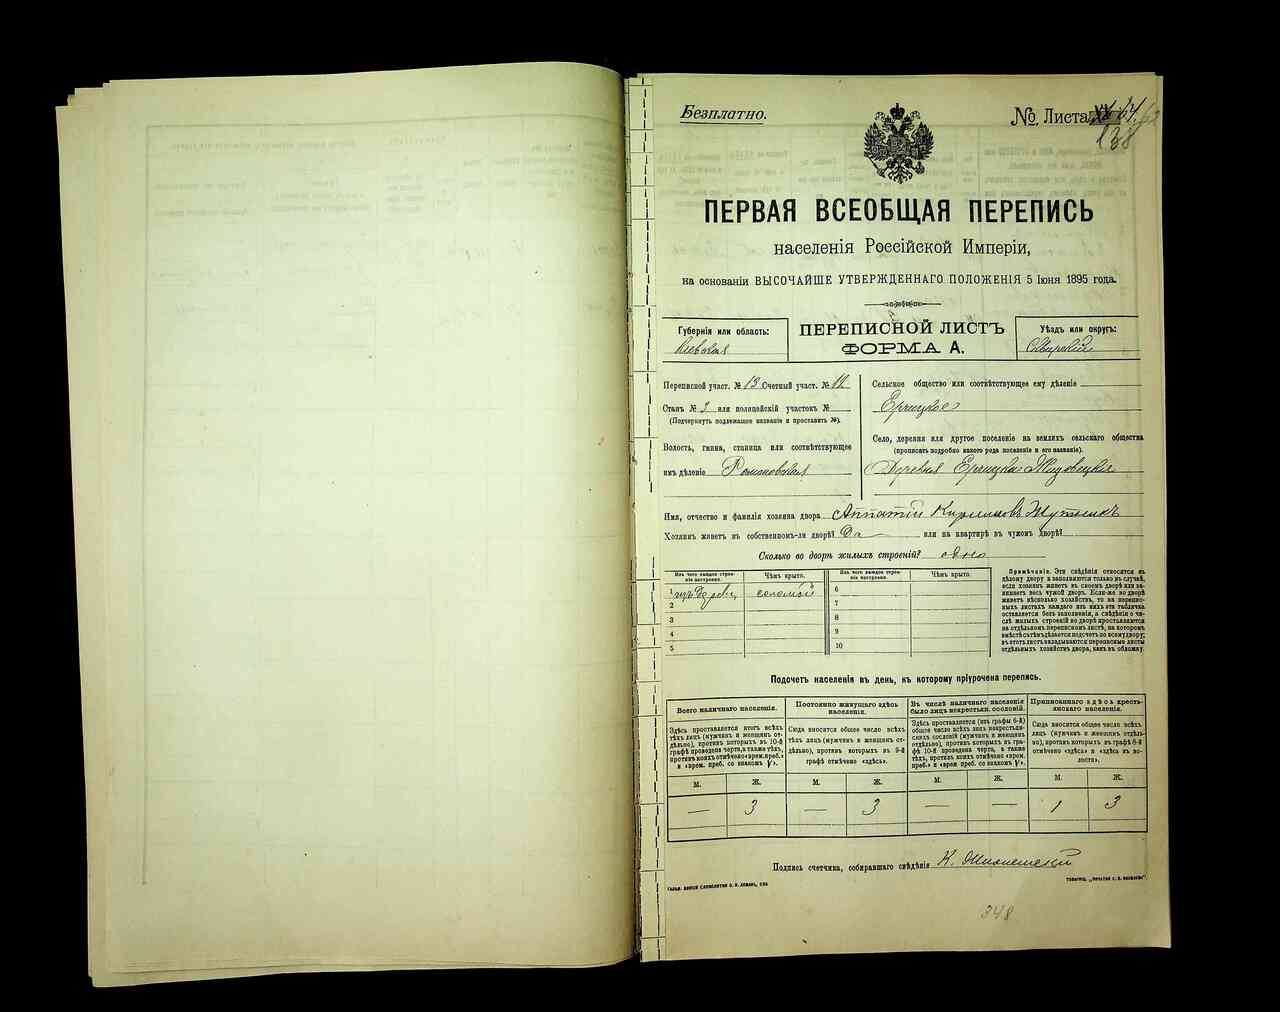 Безплатно.
№ Листа
138
ПЕРВАЯ ВСЕОБЩАЯ ПЕРЕПИСЬ
населенія Россійской Имперіи,
на основаніи ВЫСОЧАЙШЕ УТВЕРЖДЕННАГО ПОЛОЖЕНІЯ 5 Іюня 1895 года.
Губернія или область:
Кіевская
ПЕРЕПИСНОЙ ЛИСТЪ
ФОРМА А.
Уѣздъ или округъ:
Сквирскій
Переписной участ. № 13 Счетный участ. №
Станъ № 3 или полицейскій участокъ №
(Подчеркнуть подлежащее названіе и проставить №).
Волость, гмина, станица или соотвѣтствующее
имъ дѣленіе Романовская
Сельское общество или соотвѣтствующее ему дѣленіе
Ерчицкое
Село, деревня или другое поселеніе на земляхъ сельскаго общества
(прописать подробно какого рода поселеніе и его названіе).
Деревня Ерчицка
Имя, отчество и фамилія хозяина двора Ипатій Кириловъ
Хозяинъ живетъ въ собственномъ-ли дворѣ? Да или на квартирѣ въ чужомъ дворѣ?
Сколько во дворѣ жилыхъ строеній? одно
Изъ чего каждое строеніе построено. Чѣмъ крыто. Изъ чего каждое строеніе построено. Чѣмъ крыто.
1 изъ дерева соломой 6
2 7
3 8
4 9
5 10
Примѣчаніе. Эти свѣдѣнія относятся къ
цѣлому двору и заполняются только въ случаѣ,
если хозяинъ живетъ въ своемъ дворѣ или занимаетъ
весь чужой дворъ. Если-же во дворѣ
живетъ нѣсколько хозяйствъ, то на переписныхъ
листахъ каждаго изъ нихъ эта табличка
оставляется безъ заполненія, а свѣдѣнія о числѣ
жилыхъ строеній во дворѣ проставляются
на отдѣльномъ переписномъ листѣ, на которомъ
вмѣстѣ съ тѣмъ дѣлается подсчетъ по всему двору;
въ этотъ листъ вкладываются переписные листы
отдѣльныхъ хозяйствъ двора, какъ въ обложку.
Подсчетъ населенія въ день, къ которому пріурочена перепись.
Всего наличнаго населенія.
Здѣсь проставляется итогъ всѣхъ
тѣхъ лицъ (мужчинъ и женщинъ отдѣльно),
противъ которыхъ въ 10-й
графѣ проведена черта, а также тѣхъ,
противъ коихъ отмѣчено «врем. преб.»
и «врем. преб. со знакомъ V».
Постоянно живущаго здѣсь населенія.
Сюда вносится общее число всѣхъ
тѣхъ лицъ (мужчинъ и женщинъ отдѣльно),
противъ которыхъ въ 9-й
графѣ отмѣчено «здѣсь».
Въ числѣ наличнаго населенія
было лицъ некрестьян. сословій.
Здѣсь проставляется (изъ графы 6-й)
общее число всѣхъ лицъ некрестьянскихъ
сословій (мужчинъ и женщинъ
отдѣльно), противъ которыхъ въ графѣ
10-й проведена черта, а также
тѣхъ, противъ коихъ отмѣчено «врем.
преб.» и «врем. преб. со знакомъ V».
Приписаннаго здѣсь крестьянскаго населенія.
Сюда вносится общее число всѣхъ
лицъ (мужчинъ и женщинъ отдѣльно),
противъ которыхъ въ графѣ 8-й
отмѣчено «здѣсь» и «здѣсь въ
волости».
М. Ж. М. Ж. М. Ж. М. Ж.
— 3 — 3 — — 1 3
Подпись счетчика, собиравшаго свѣдѣнія К.
348